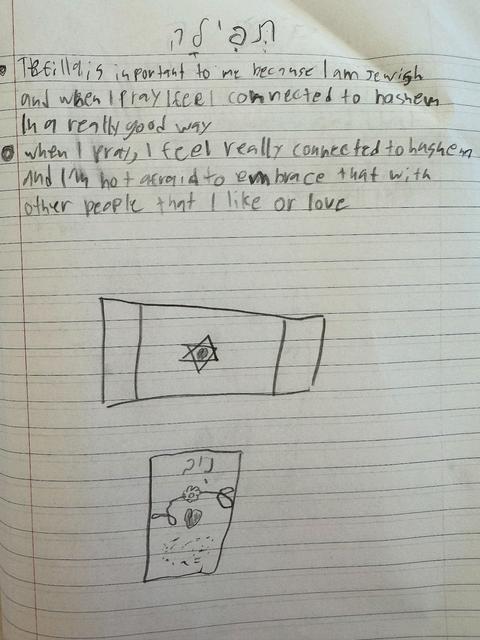 תפילה
Tefilla is important to me because I am Jewish
and when I pray I feel connected to hashem
In a really good way
when I pray, I feel really connected to hashem
and I'm not afraid to embrace that with
other people that I like or love